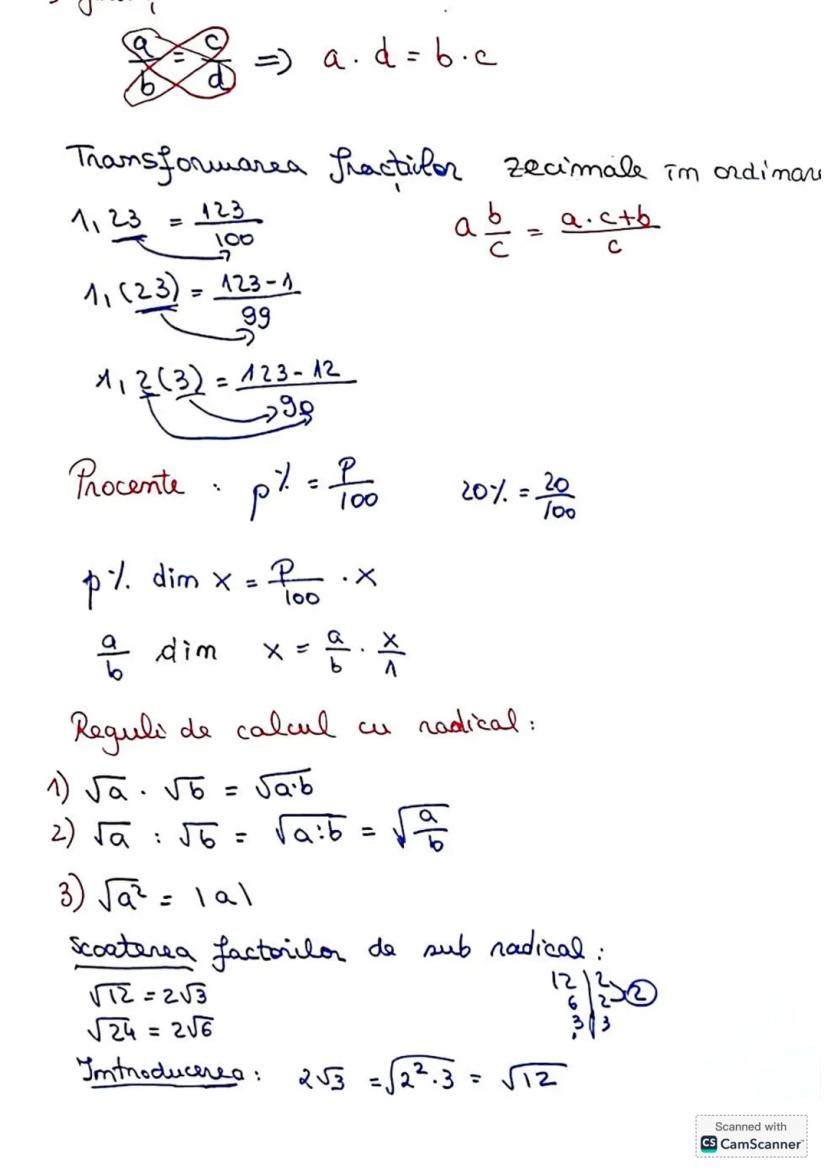 a/b = c/d => a · d = b · c
Transformarea fracțiilor zecimale în ordinare
1,23 = 123/100
a b/c = a·c+b/c
1,(23) = 123-1/99
1,2(3) = 123-12/90
Procente : p% = p/100 20% = 20/100
p% din x = p/100 · x
a/b din x = a/b · x/1
Reguli de calcul cu radical :
1) √a · √b = √a·b
2) √a : √b = √a:b = √a/b
3) √a² = |a|
Scoaterea factorilor de sub radical :
√12 = 2√3
√24 = 2√6
12 | 2
6 | 2 2
3 | 3
Introducerea : 2√3 = √2²·3 = √12
Scanned with
CS CamScanner